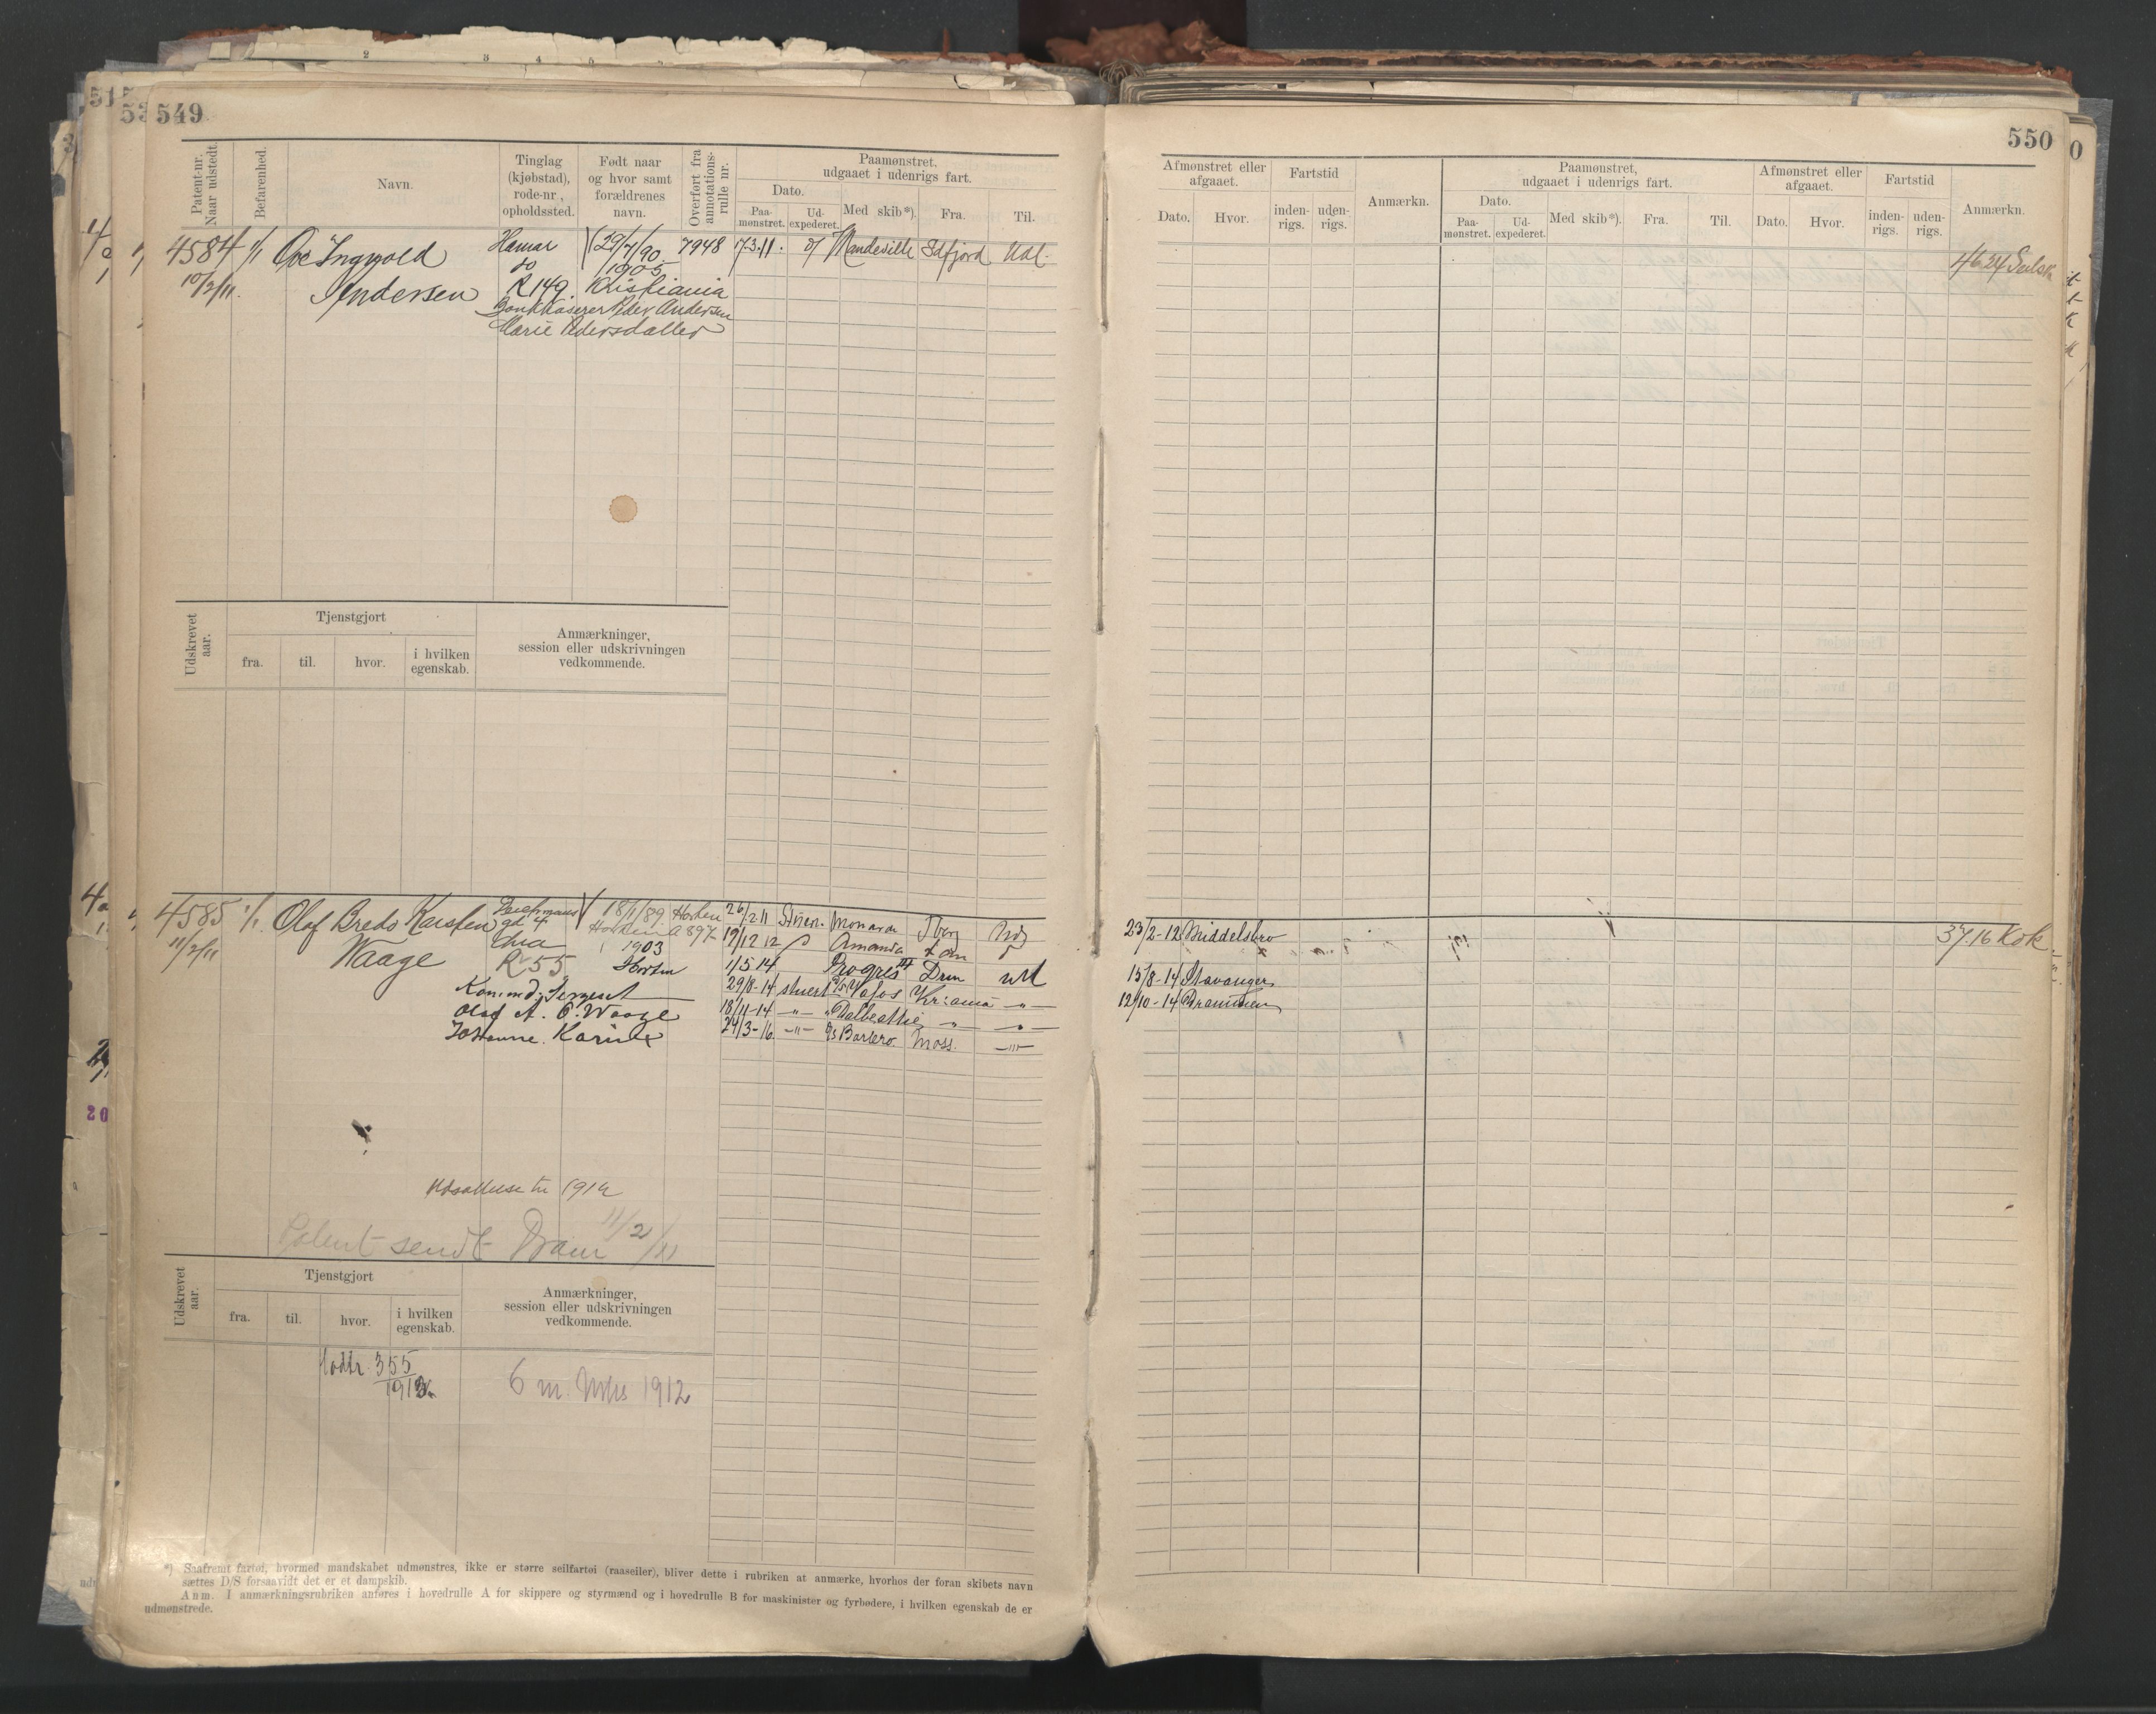 549
Patent-nr. Naar udstedt.
Befarenhed.
Navn.
Tinglag (kjøbstad), rode-nr, opholdssted.
Født naar og hvor samt forældrenes navn.
Overført fra annotations-rulle nr.
Paamønstret, udgaaet i udenrigs fart.
Dato.
Paa-mønstret.
Ud-expederet.
Med skib*).
Fra.
Til.
4584 1/1 Ove Ingvold Hamar 29/7/90 7948 17.3.11. Mandeville Idfjord Udl.
do 1905
10/2/11. Andersen R 149. Kristiania
Bankkasserer Peder Andersen
Marie Pedersdatter
Udskrevet aar.
Tjenstgjort
fra.
til.
hvor.
i hvilken egenskab.
Anmærkninger, session eller udskrivningen vedkommende.
4585 1/1. Olaf Breds Karsten gt 4 18/1/89 Horten 26/2 11 Monarch Tberg
Horten A 897
11/2/11 Waage Chra 1903 19/12 12 Amanda
R 55 Horten 1/5 14 Progres III Dram udl
Kommd: Sergeant 29/8-14 stuert D/S Vafos Kr:ania -"-
Olaf A. O. Waage 18/11-14 -"- Dalbeattie -"- -"-
Johanne Karine 24/3-16. -"- D/S Bartero. Moss. -"-
Udsættelse til 1912
Patent sendt Dram 11/2/11
Udskrevet aar.
Tjenstgjort
fra.
til.
hvor.
i hvilken egenskab.
Anmærkninger, session eller udskrivningen vedkommende.
355
6 m. 1912
*) Saafremt fartøi, hvormed mandskabet udmønstres, ikke er større seilfartøi (raaseiler), bliver dette i rubriken at anmærke, hvorhos der foran skibets navn
sættes D/S forsaavidt det er et dampskib.
Anm. I anmærkningsrubriken anføres i hovedrulle A for skippere og styrmænd og i hovedrulle B for maskinister og fyrbødere, i hvilken egenskab de er
udmønstrede.
550
Afmønstret eller afgaaet.
Dato.
Hvor.
Fartstid
inden-rigs.
uden-rigs.
Anmærkn.
Paamønstret, udgaaet i udenrigs fart.
Dato.
Paa-mønstret.
Ud-expederet.
Med skib*).
Fra.
Til.
Afmønstret eller afgaaet.
Dato.
Hvor.
Fartstid
inden-rigs.
uden-rigs.
Anmærkn.
4624
23/2-12 Middelsbro 3716 Kok
15/8-14 Stavanger
12/10-14 Drammen